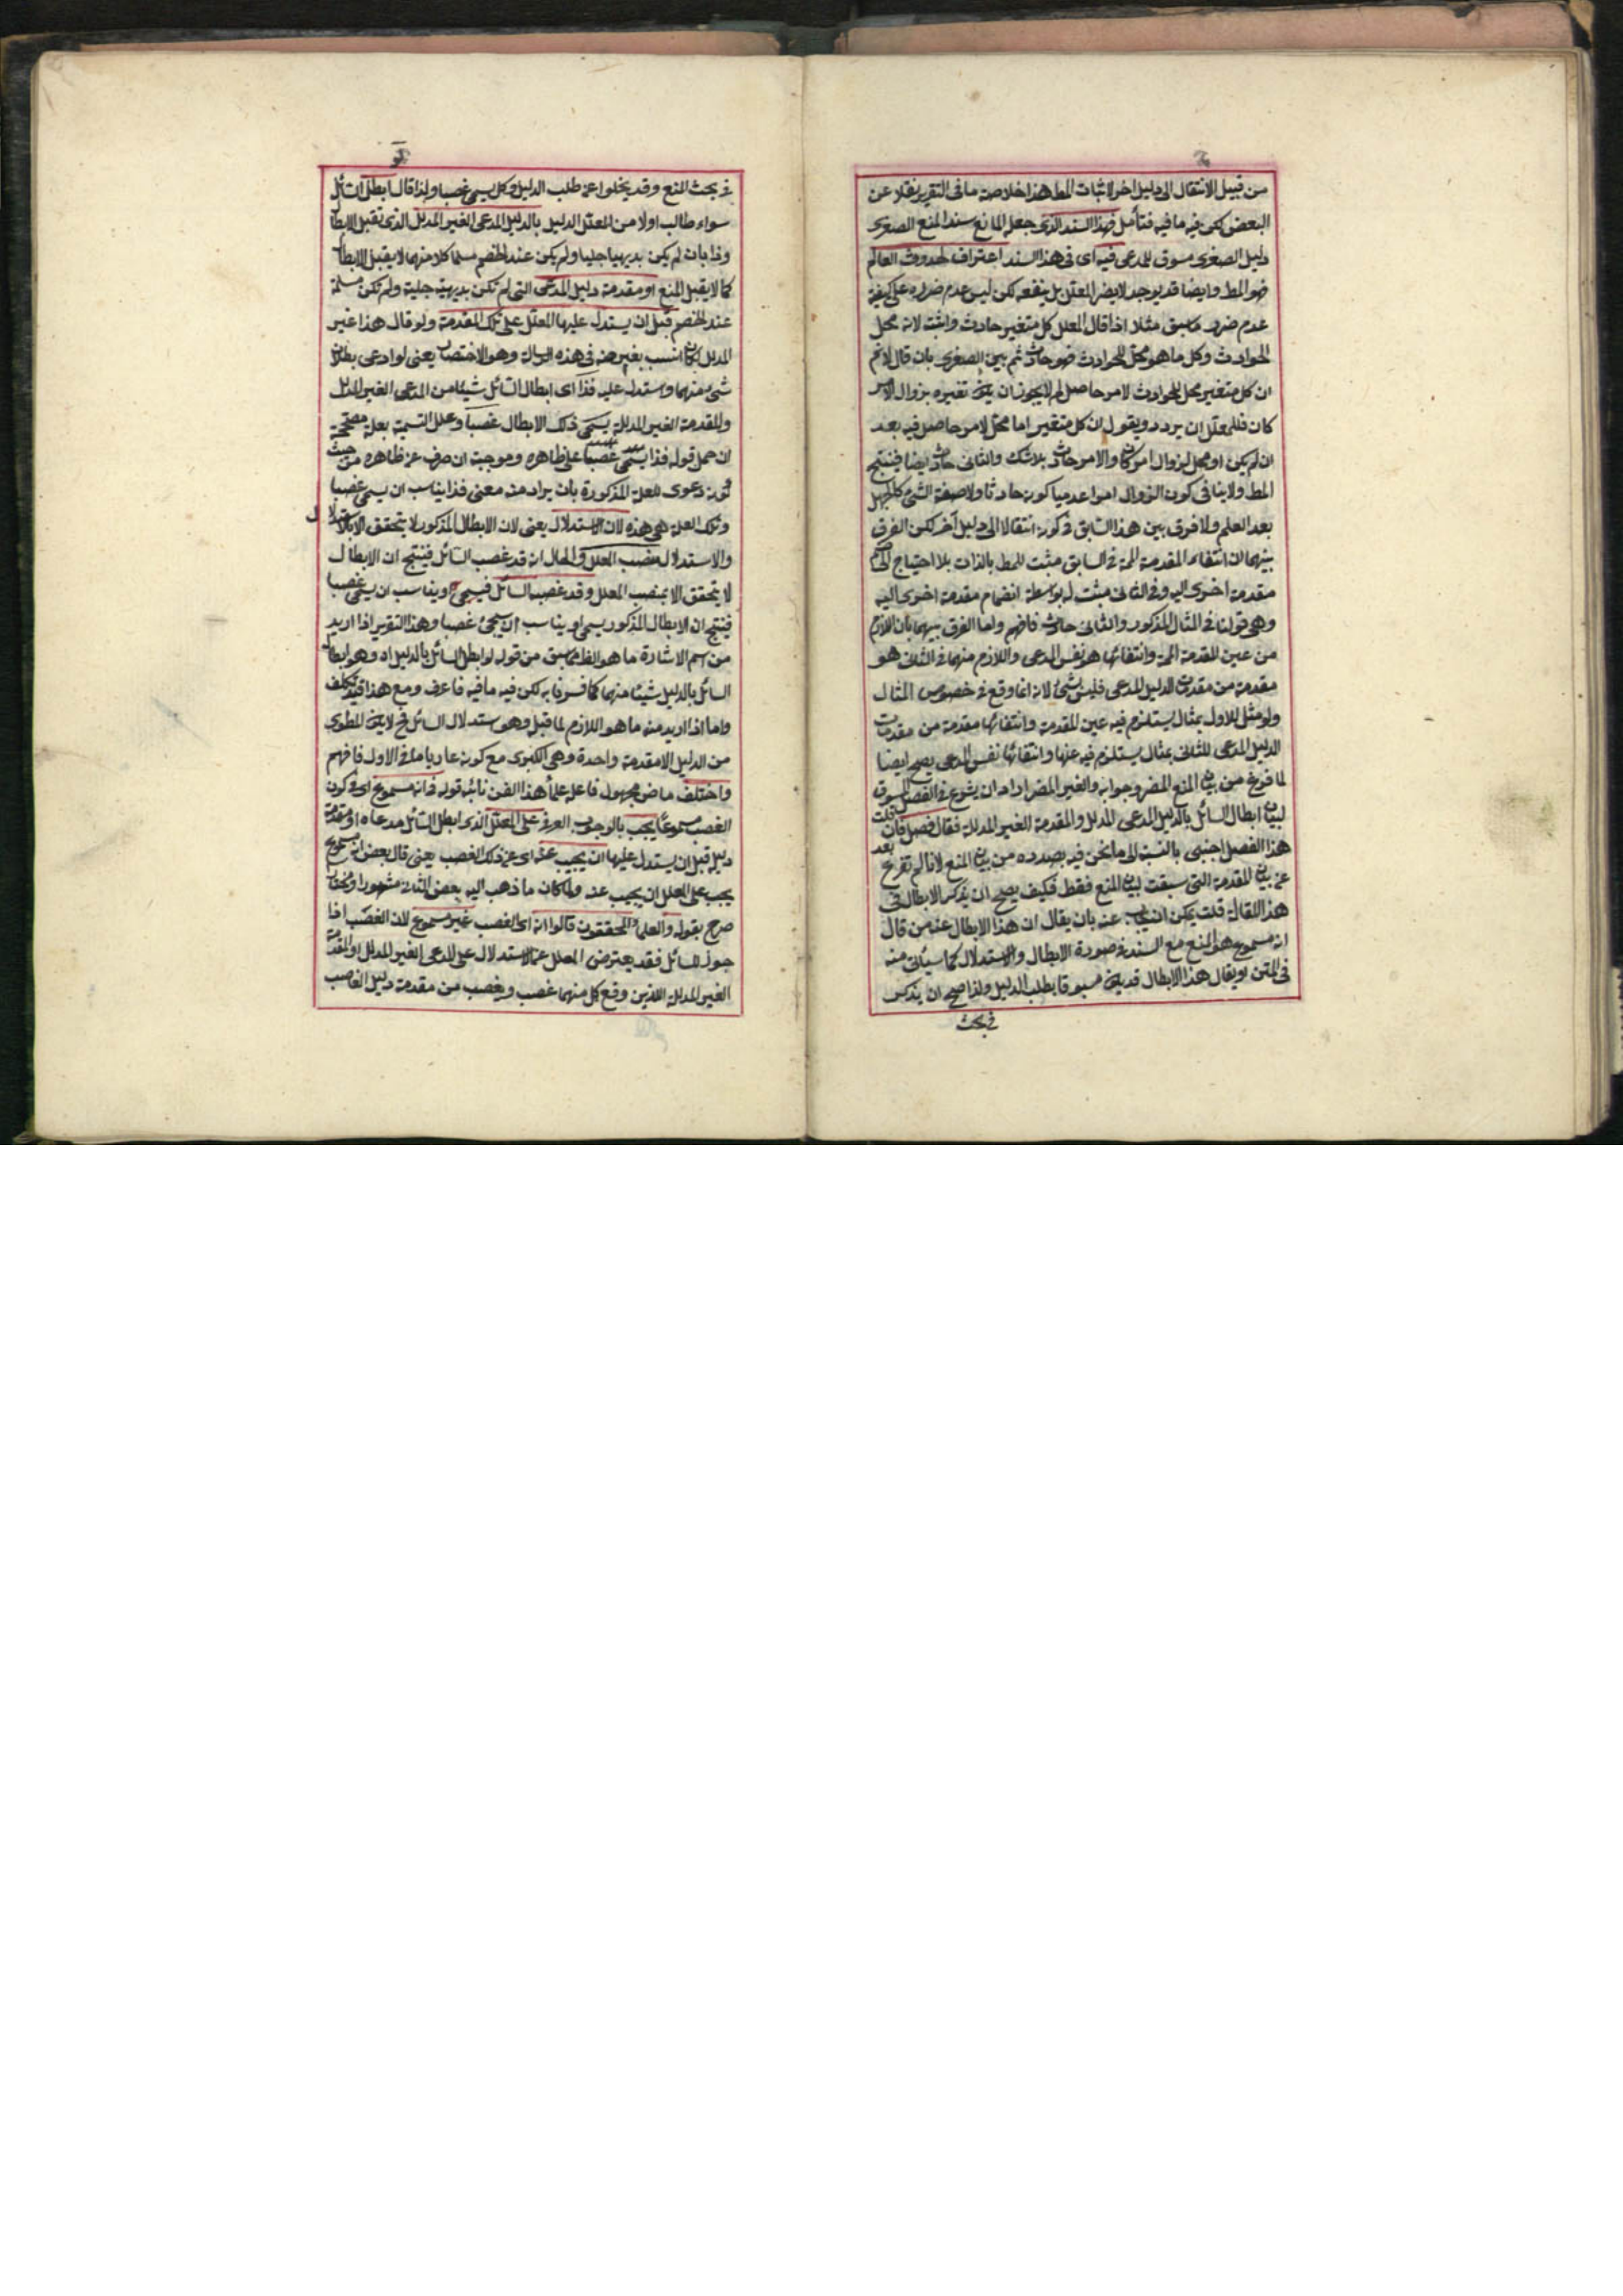 من قبيل الانتقال الى دليل اخر لاثبات المط هذا خلاصة ما فى التقرير نقلا عن
البعض لكن فيه ما فيه فتأمل فهذا السند الذى جعله المانع سند المنع الصغرى
دليل الصغرى مسوق للمدعى فيه اى فى هذا السند اعتراف لحدوث العالم
فهو المط وايضا قد يوجد لا يضر المعلل بل ينفعه لكن ليس عدم ضرره على كيفية
عدم ضرر ما سبق مثلا اذا قال المعلل كل متغير حادث واثبته لانه محل
الحوادث وكل ما هو محل للحوادث فهو حادث ثم بين الصغرى بان قال لانم
ان كل متغير محل للحوادث لامر حاصل لم لا يجوز ان يكون تغيره بزوال الامر
كان فللمعلل ان يردد ويقول ان كل متغير اما محل لامر حاصل فيه بعد
ان لم يكن او محل لزوال امر كان والامر حادث بلا شك والثانى حادث ايضا فينتج
المط ولا ينافى كون الزوال امرا عدميا كونه حادثا ولا صفة الشئ كالجهل
بعد العلم ولا فرق بين هذا السابق فى كونه انتقالا الى دليل آخر لكن الفرق
بينهما ان انتفاء المقدمة المم فى السابق مثبت للمط بالذات بلا احتياج الى
مقدمة اخرى اليه وفى الثانى مثبت له بواسطة انضمام مقدمة اخرى اليه
وهى قولنا فى المثال المذكور والثانى حادث فافهم واما الفرق بينهما بان اللازم
من عين المقدمة المم وانتفائها هو نفس المدعى واللازم منهما فى الثانى هو
مقدمة من مقدمات الدليل المدعى فليس بشئ لانه انما وقع فى خصوص المثال
ولو مثل للاول بمثال يستلزم فيه عين المقدمة وانتفائها مقدمة من مقدمات
الدليل المدعى للثانى بمثال يستلزم فيه عنها وانتفائها نفس المدعى يصح ايضا
لما فرغ من بيان المنع المضر وجوابه والغير المضر اراد ان يشرع فى الفصل المسوق
لبيان ابطال السائل بالدليل المدعى المدلل والمقدمة الغير المدللة فقال فصل فان قلت
هذا الفصل اجنبى بالنسبة الى ما نحن فيه بصدده من بيان المنع لانا لم نفرغ بعد
عن بيان المقدمة التى سبقت لبيان المنع فقط فكيف يصح ان يذكر الابطال فى
هذا المقالة قلت يمكن ان يجاب عنه بان يقال ان هذا الابطال عند من قال
انه مسموع هو المنع مع السند فى صورة الابطال والاستدلال كما سيأتى منه
فى المتن او يقال هذا الابطال قد يكون مسبوقا بطلب الدليل ولذا صح ان يذكر
فى بحث
فى بحث المنع وقد يخلوا عن طلب الدليل وكل يسمى غصبا ولذا قال ابطل السائل
سواء طالب اولا من المعلل الدليل بالدليل المدعى الغير المدلل الذى تقبل الابطال
وذا بان لم يكن بديهيا جليا ولم يكن عند الخصم مسلما كلا منهما لا يقبل الابطال
كما لا يقبل المنع او مقدمة دليل المدعى التى لم تكن بديهية جلية ولم تكن مسلمة
عند الخصم قبل ان يستدل عليها المعلل على تلك المقدمة ولو قال هذا غير
المدلل لكان انسب بغيرهنه فى هذه الرسالة وهو الاختصار يعنى لو ادعى بطلان
شئ منهما واستدل عليه فذا اى ابطال السائل شيئا من المدعى الغير المدلل
والمقدمة الغير المدللة يسمى ذلك الابطال غصبا وعلل التسمية بعلة مصححة
ان حمل قوله فذا يسمى غصبا على ظاهره وموجبة ان صرف عن ظاهره من حيث
كونه دعوى للعلة المذكورة بان يراد منه معنى فذا يناسب ان يسمى غصبا
وتلك العلة هى هذه لان الاستدلال يعنى لان الابطال المذكور لا يتحقق الا بالاستدلال
والاستدلال منصب المعلل والحال انه قد غصب السائل فينتج ان الابطال
لا يتحقق الا بمنصب المعلل وقد غصب السائل فيسمى او يناسب ان يسمى غصبا
فينتج ان الابطال المذكور يسمى او يناسب ان يسمى غصبا وهذا التقرير اذا اريد
من اسم الاشارة ما هو الظ مما سبق من قوله لو ابطل السائل بالدليل اه وهو ابطال
السائل بالدليل شيئا منهما كما فسرنا به لكن فيه ما فيه فاعرف ومع هذا فيه تكلف
واما اذا اريد منه ما هو اللازم لما قبل وهو استدلال السائل فح لا يكون المطوى
من الدليل الا مقدمة واحدة وهى الكبرى مع كونه عاريا ما فى الاول فافهم
واختلف ماض مجهول فاعله علماء هذا الفن نائبه قوله فى انه مسموع اى فى كون
الغصب مسموعا يجب بالوجوب العرفى على المعلل الذى ابطل السائل مدعاه او مقدمة
دليله قبل ان يستدل عليها ان يجيب عنه اى عن ذلك الغصب يعنى قال بعض انه مسموع
يجب على المعلل ان يجيب عنه ولما كان ما ذهب اليه بعض الثانى مشهورا ومختارا
صرح بقوله والعلماء المحققون قالوا انه اى الغصب غير مسموع لان الغصب اذا
جوز للسائل فقد يعترض المعلل عما استدلال على المدعى الغير المدلل او المقدمة
الغير المدللة اللذين وقع كل منهما غصب ويغصب من مقدمة دليل الغاصب